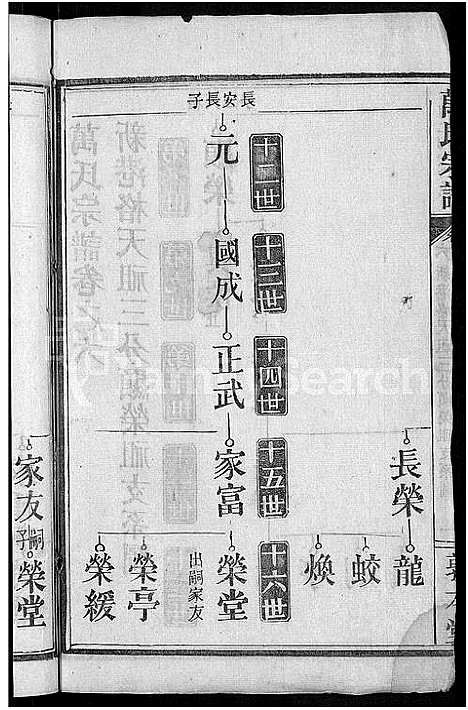 萬氏宗譜
長榮
龍
蛟
煥
十二世
十三世
十四世
十五世
十六世
長安長子
元
國成
正武
家富
榮堂
出嗣家友
榮亭
榮緩
新港格天祖三分顯榮祖支系
萬氏宗譜卷之六
家友
嗣子
榮堂